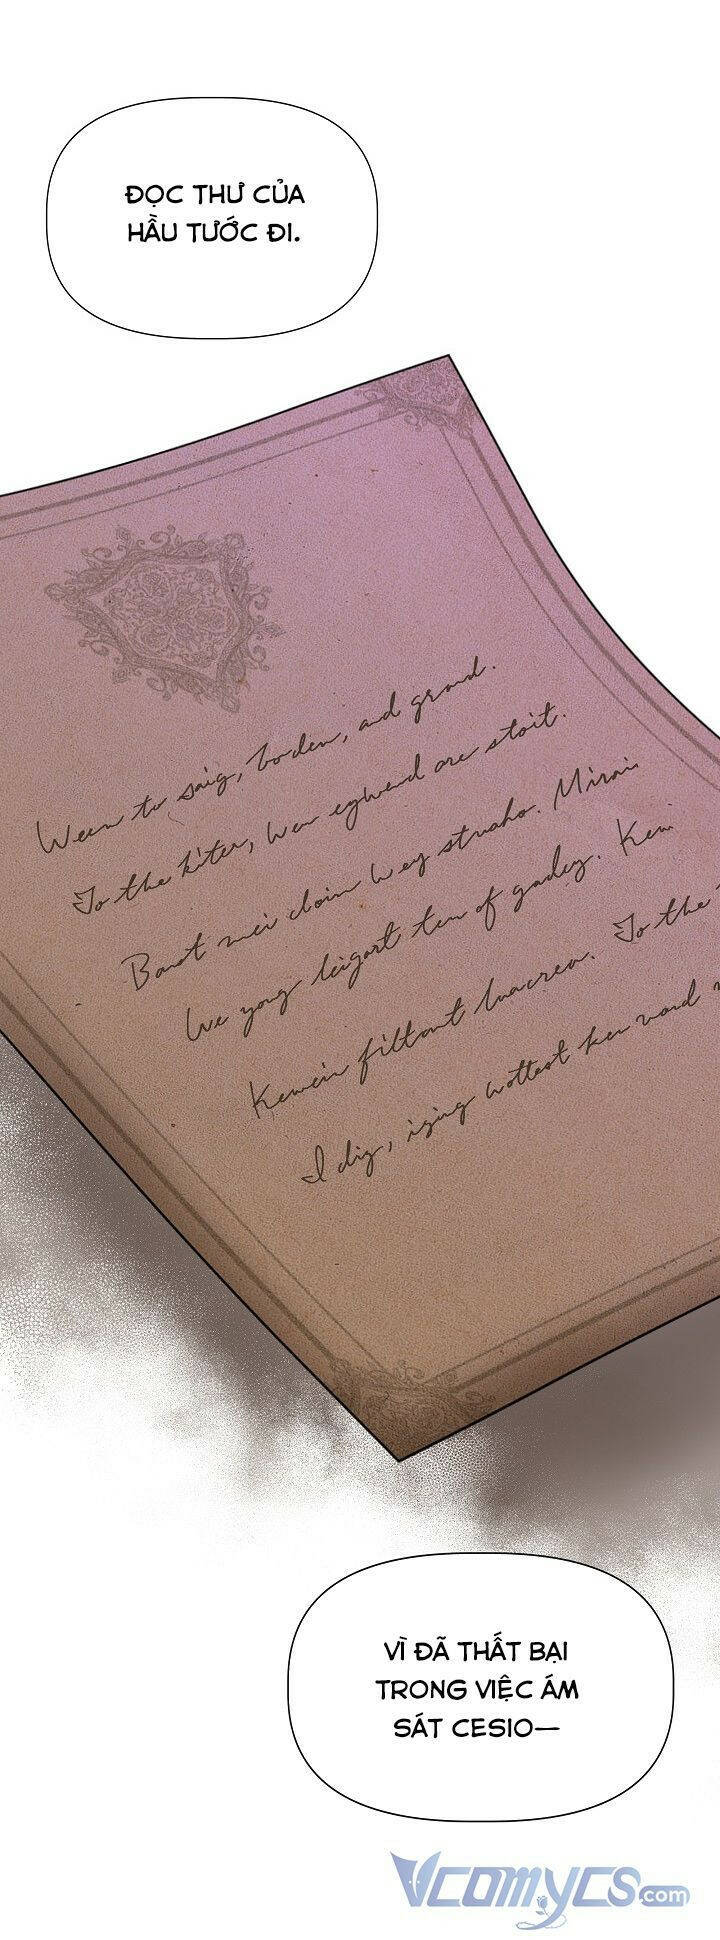 ĐỌC THƯ CỦA
HẦU TƯỚC ĐI.
Ween to saig, boden, and grand.
To the kiter, wen egwend are stoit.
Banot mei doin wey strusho. Mirai
We yong leigart ten of gadey. Kem
Kewein filtant luacrea. To the
I dig, izing wottest ken vard
VÌ ĐÃ THẤT BẠI
TRONG VIỆC ÁM
SÁT CESIO—
VCOMYCS.com